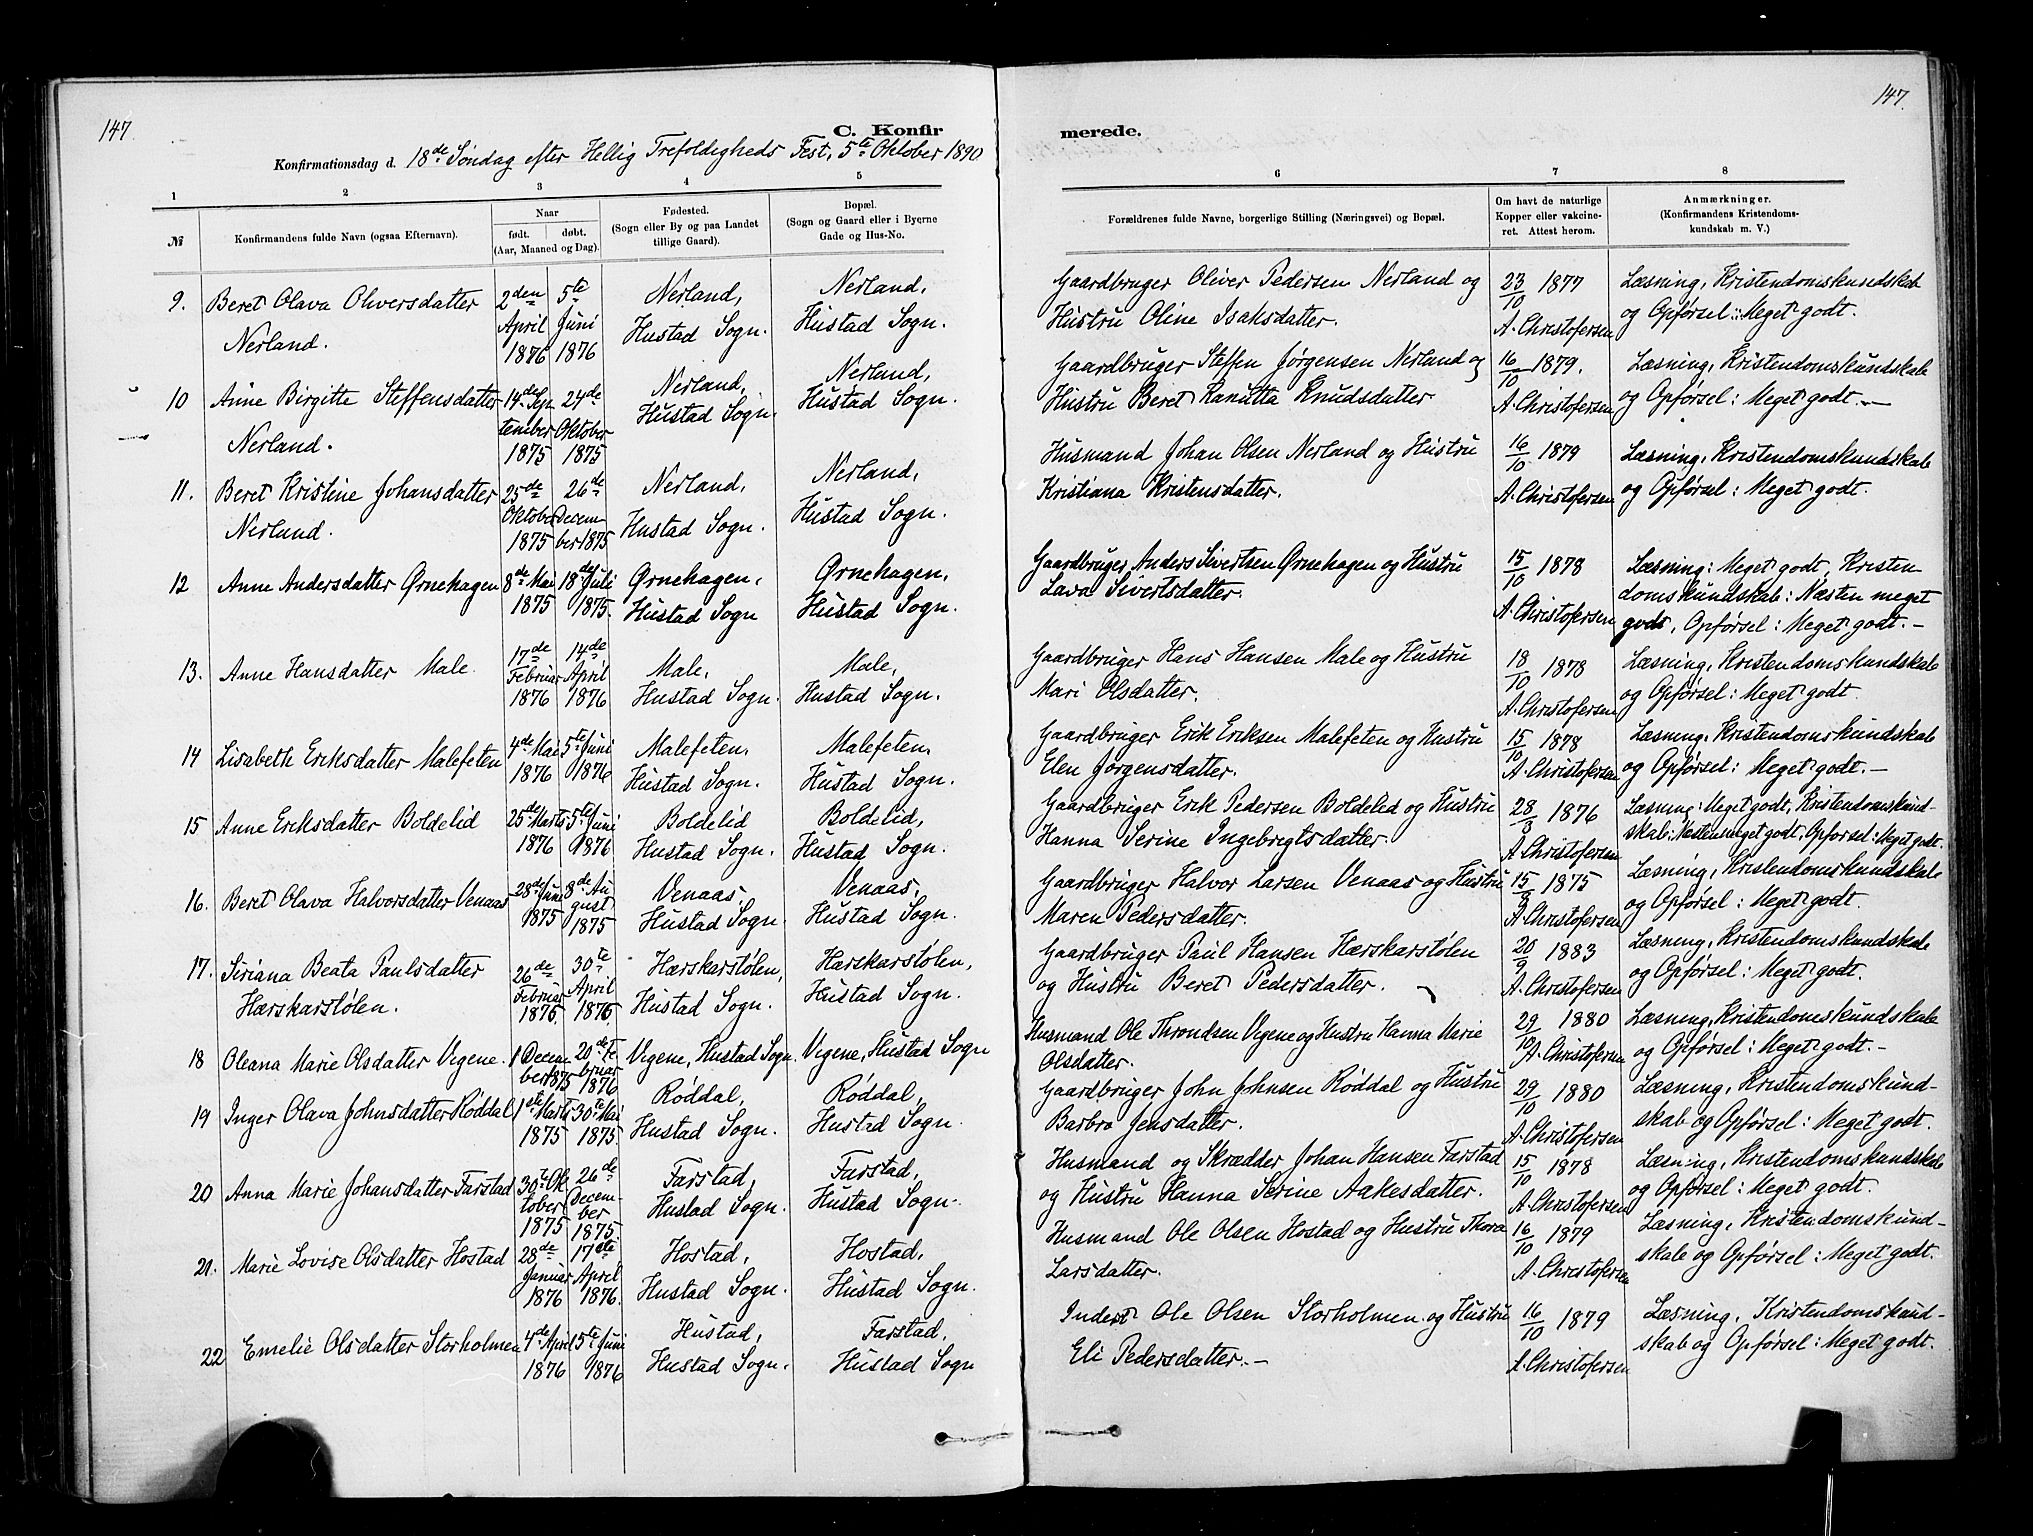 147
147.
C. Konfir
merede.
Konfirmationsdag d. 18de Søndag efter Hellig Trefoldigheds Fest, 5te Oktober 1890
1 2 3 4 5
6 7 8
№
Konfirmandens fulde Navn (ogsaa Efternavn).
Naar
født. døbt.
(Aar, Maaned og Dag).
Fødested.
(Sogn eller By og paa Landet
tillige Gaard).
Bopæl.
(Sogn og Gaard eller i Byerne
Gade og Hus-No.
Forældrenes fulde Navne, borgerlige Stilling (Næringsvei) og Bopæl.
Om havt de naturlige
Kopper eller vakcine-
ret. Attest herom.
Anmærkninger.
(Konfirmandens Kristendoms-
kundskab m. V.)
9. Beret Olava Oliversdatter
Nerland.
2den
April
1876
5te
Juni
1876
Nerland,
Hustad Sogn.
Nerland,
Hustad Sogn.
Gaardbruger Oliver Pedersen Nerland og
Hustru Oline Isaksdatter.
23/10 1877
A. Christofersen
Læsning, Kristendomskundskab
og Opførsel: Meget godt.
10 Anne Birgitte Steffensdatter
Nerland.
14de Sep
tember
1875
24de
Oktober
1875
Nerland,
Hustad Sogn.
Nerland,
Hustad Sogn.
Gaardbruger Steffen Jørgensen Nerland og
Hustru Beret Ranutta Knudsdatter
16/10 1879.
A. Christofersen
Læsning, Kristendomskundskab
og Opførsel: Meget godt. —
11. Beret Kristine Johansdatter
Nerland.
25de
Oktober
1875
26de
Decem
ber 1875
Nerland,
Hustad Sogn.
Nerland,
Hustad Sogn.
Husmand Johan Olsen Nerland og Hustru
Kristiana Kristensdatter.
16/10 1879
A. Christofersen
Læsning, Kristendomskundskab
og Opførsel: Meget godt.
12 Anne Andersdatter Ørnehagen
8de Mai
1875
18de Juli
1875.
Ørnehagen,
Hustad Sogn
Ørnehagen,
Hustad Sogn.
Gaardbruger Anders Sivertsen Ørnehagen og Hustru
Lava Sivertsdatter.
15/10 1878
A. Christofersen
Læsning: Meget godt, Kristen
domskundskab: Næsten meget
godt, Opførsel: Meget godt. -
13. Anne Hansdatter Male
17de
Februar
1876
14de
April
1876
Male,
Hustad Sogn.
Male,
Hustad Sogn.
Gaardbruger Hans Hansen Male og Hustru
Mari Olsdatter.
18/10 1878
A. Christofersen
Læsning, Kristendomskundskab
og Opførsel: Meget godt.
14 Lisabeth Eriksdatter Malefeten
4de Mai
1876
5te Juni
1876
Malefeten,
Hustad Sogn.
Malefeten,
Hustad Sogn.
Gaardbruger Erik Eriksen Malefeten og Hustru
Elen Jørgensdatter.
15/10 1878
A. Christofersen
Læsning, Kristendomskundskab
og Opførsel: Meget godt. —
15 Anne Eriksdatter Boldelid
25de Marts
1876
5te Juni
1876
Boldelid
Hustad Sogn.
Boldelid,
Hustad Sogn.
Gaardbruger Erik Pedersen Boldelid og Hustru
Hanna Serine Ingebregtsdatter.
28/3 1876
A. Christofersen
Læsning: Meget godt, Kristendomskund-
skab: Næsten meget godt, Opførsel: Meget godt.
16. Beret Olava Halvorsdatter Venaas
28de Juni
1875
8de Au
gust
1875
Venaas,
Hustad Sogn.
Venaas,
Hustad Sogn.
Gaardbruger Halvor Larsen Venaas og Hustru
Maren Pedersdatter.
15/9 1875
A. Christofersen
Læsning, Kristendomskundskab
og Opførsel: Meget godt.
17. Siriana Beata Paulsdatter
Hærskarstølen.
26de
Februar
1876.
30te
April
1876
Hærskarstølen,
Hustad Sogn.
Hærskarstølen,
Hustad Sogn.
Gaardbruger Paul Hansen Hærskarstølen
og Hustru Beret Pedersdatter.
20/9 1883
A. Christofersen
Læsning, Kristendomskundskab
og Opførsel: Meget godt.
18 Oleana Marie Olsdatter Vegene.
1 Decem
ber 1875
20de Fe
bruar
1876
Vegene, Hustad Sogn.
Vegene, Hustad Sogn
Husmand Ole Throndsen Vegene og Hustru Hanna Marie
Olsdatter.
29/10 1880
A. Christofersen
Læsning, Kristendomskundskab
og Opførsel: Meget godt. -
19 Inger Olava Johnsdatter Røddal
1ste Marts
1875
30te Mai
1875.
Røddal,
Hustad Sogn.
Røddal,
Hustad Sogn.
Gaardbruger John Johnsen Røddal og Hustru
Barbro Jensdatter.
29/10 1880
A. Christofersen
Læsning, Kristendomskund-
skab og Opførsel: Meget godt.
20 Anna Marie Johansdatter Farstad
30te Ok
tober
1875
26de
Decem-
ber
1875
Farstad,
Hustad Sogn.
Farstad,
Hustad Sogn.
Husmand og Skrædder Johan Hansen Farstad
og Hustru Hanna Serine Aakesdatter.
15/10 1878
A. Christofersen
Læsning, Kristendomskundskab
og Opførsel: Meget godt.
21. Marie Lovise Olsdatter Hostad
28de
Januar
1876
17de
April
1876.
Hostad,
Hustad Sogn.
Hostad,
Hustad Sogn.
Husmand Ole Olsen Hostad og Hustru Thora
Larsdatter.
16/10 1879
A. Christofersen
Læsning, Kristendomskund-
skab og Opførsel: Meget godt.
22 Emelie Olsdatter Storholmen
4de April
1876
5te Juni
1876
Hustad,
Hustad Sogn.
Farstad,
Hustad Sogn
Inderst Ole Olsen Storholmen og Hustru
Eli Pedersdatter. -
16/10 1879
A. Christofersen
Læsning, Kristendomskund-
skab og Opførsel: Meget godt.